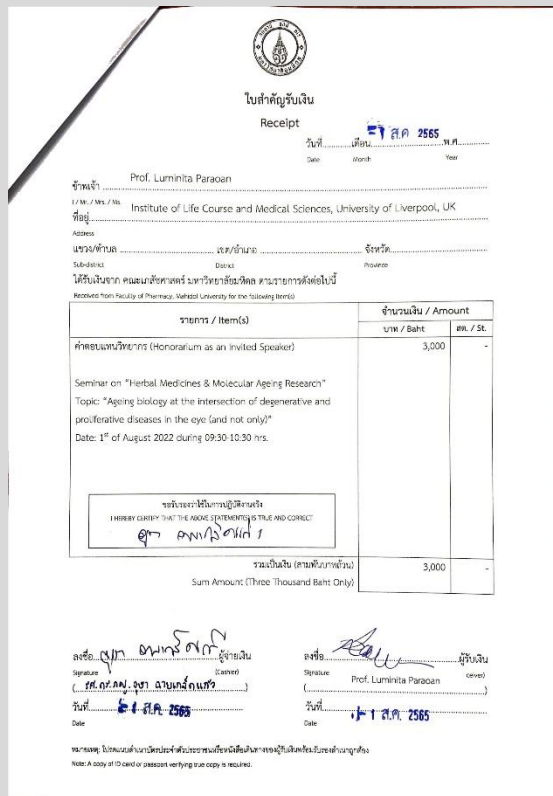 ใบสำคัญรับเงิน
Receipt
วันที่ เดือน - 1 ส.ค 2565 พ.ศ.
Date Month Year
ข้าพเจ้า Prof. Luminita Paraoan
I / Mr. / Mrs. / Ms.
ที่อยู่ Institute of Life Course and Medical Sciences, University of Liverpool, UK
Address
แขวง/ตำบล เขต/อำเภอ จังหวัด
Sub-district District Province
ได้รับเงินจาก คณะเภสัชศาสตร์ มหาวิทยาลัยมหิดล ตามรายการดังต่อไปนี้
Received from Faculty of Pharmacy, Mahidol University for the following item(s)
รายการ / Item(s) จำนวนเงิน / Amount
บาท / Baht สต. / St.
ค่าตอบแทนวิทยากร (Honorarium as an Invited Speaker) 3,000 -
Seminar on "Herbal Medicines & Molecular Ageing Research"
Topic: "Ageing biology at the intersection of degenerative and
proliferative diseases in the eye (and not only)"
Date: 1st of August 2022 during 09:30-10:30 hrs.
ขอรับรองว่าใช้ในการปฏิบัติงานจริง
I HEREBY CERTIFY THAT THE ABOVE STATEMENT(S) IS TRUE AND CORRECT
รวมเป็นเงิน (สามพันบาทถ้วน) 3,000 -
Sum Amount (Three Thousand Baht Only)
ลงชื่อ ผู้จ่ายเงิน ลงชื่อ ผู้รับเงิน
Signature (Cashier) Signature ceiver)
( รศ.ดร.ภญ. จุฑา ) ( Prof. Luminita Paraoan )
วันที่ - 1 ส.ค. 2565 วันที่ - 1 ส.ค. 2565
Date Date
หมายเหตุ: โปรดแนบสำเนาบัตรประจำตัวประชาชนหรือหนังสือเดินทางของผู้รับเงินพร้อมรับรองสำเนาถูกต้อง
Note: A copy of ID card or passport verifying true copy is required.